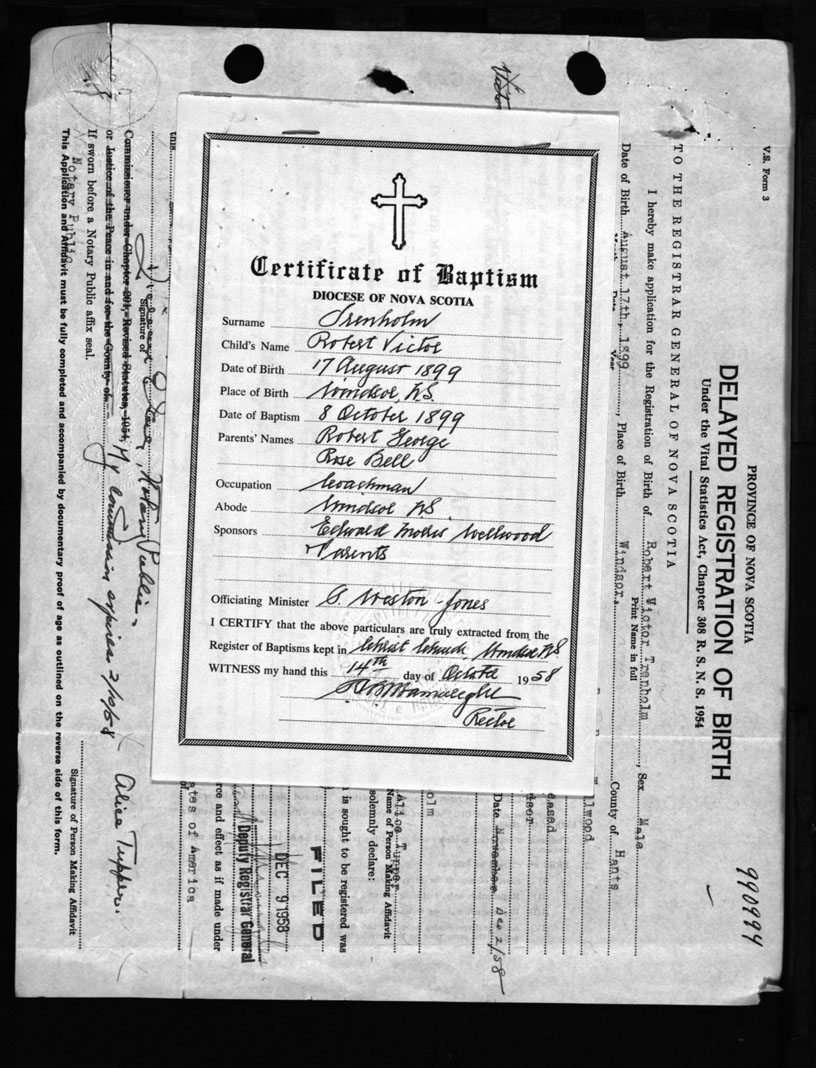 Certificate of Baptism
DIOCESE OF NOVA SCOTIA
Surname Trenholm
Child's Name Robert Victor
Date of Birth 17 August 1899
Place of Birth Windsor, N.S.
Date of Baptism 8 October 1899
Parents' Names Robert George
Rose Bell
Occupation Coachman
Abode Windsor NS
Sponsors Edward Mollis Wellwood
Parents
Officiating Minister G. Weston-Jones
I CERTIFY that the above particulars are truly extracted from the
Register of Baptisms kept in Christ Church Windsor NS
WITNESS my hand this 14th day of October 1958
Rector
V.S. Form 3
990994
PROVINCE OF NOVA SCOTIA
DELAYED REGISTRATION OF BIRTH
Under the Vital Statistics Act, Chapter 308 R. S. N. S. 1954
TO THE REGISTRAR GENERAL OF NOVA SCOTIA
I hereby make application for the Registration of Birth of Robert Victor Trenholm, Sex Male
Print Name in full
Date of Birth August 17th, 1899, Place of Birth Windsor, County of Hants
Month Date Year
llwood
eased
dsor
Date November Dec 2/58
olm
Alice Tupper
Name of Person Making Affidavit
solemnly declare:
is sought to be registered was
FILED
DEC 9 1958
Deputy Registrar General
rce and effect as if made under
ates of America
this
Signature of
Notary Public.
Commissioner under Chapter 201, Revised Statutes, 1954, My commission expires 2/10/58
or Justice of the Peace in and for the County of
If sworn before a Notary Public affix seal.
Notary Public
Alice Tupper.
Signature of Person Making Affidavit
This Application and Affidavit must be fully completed and accompanied by documentary proof of age as outlined on the reverse side of this form.